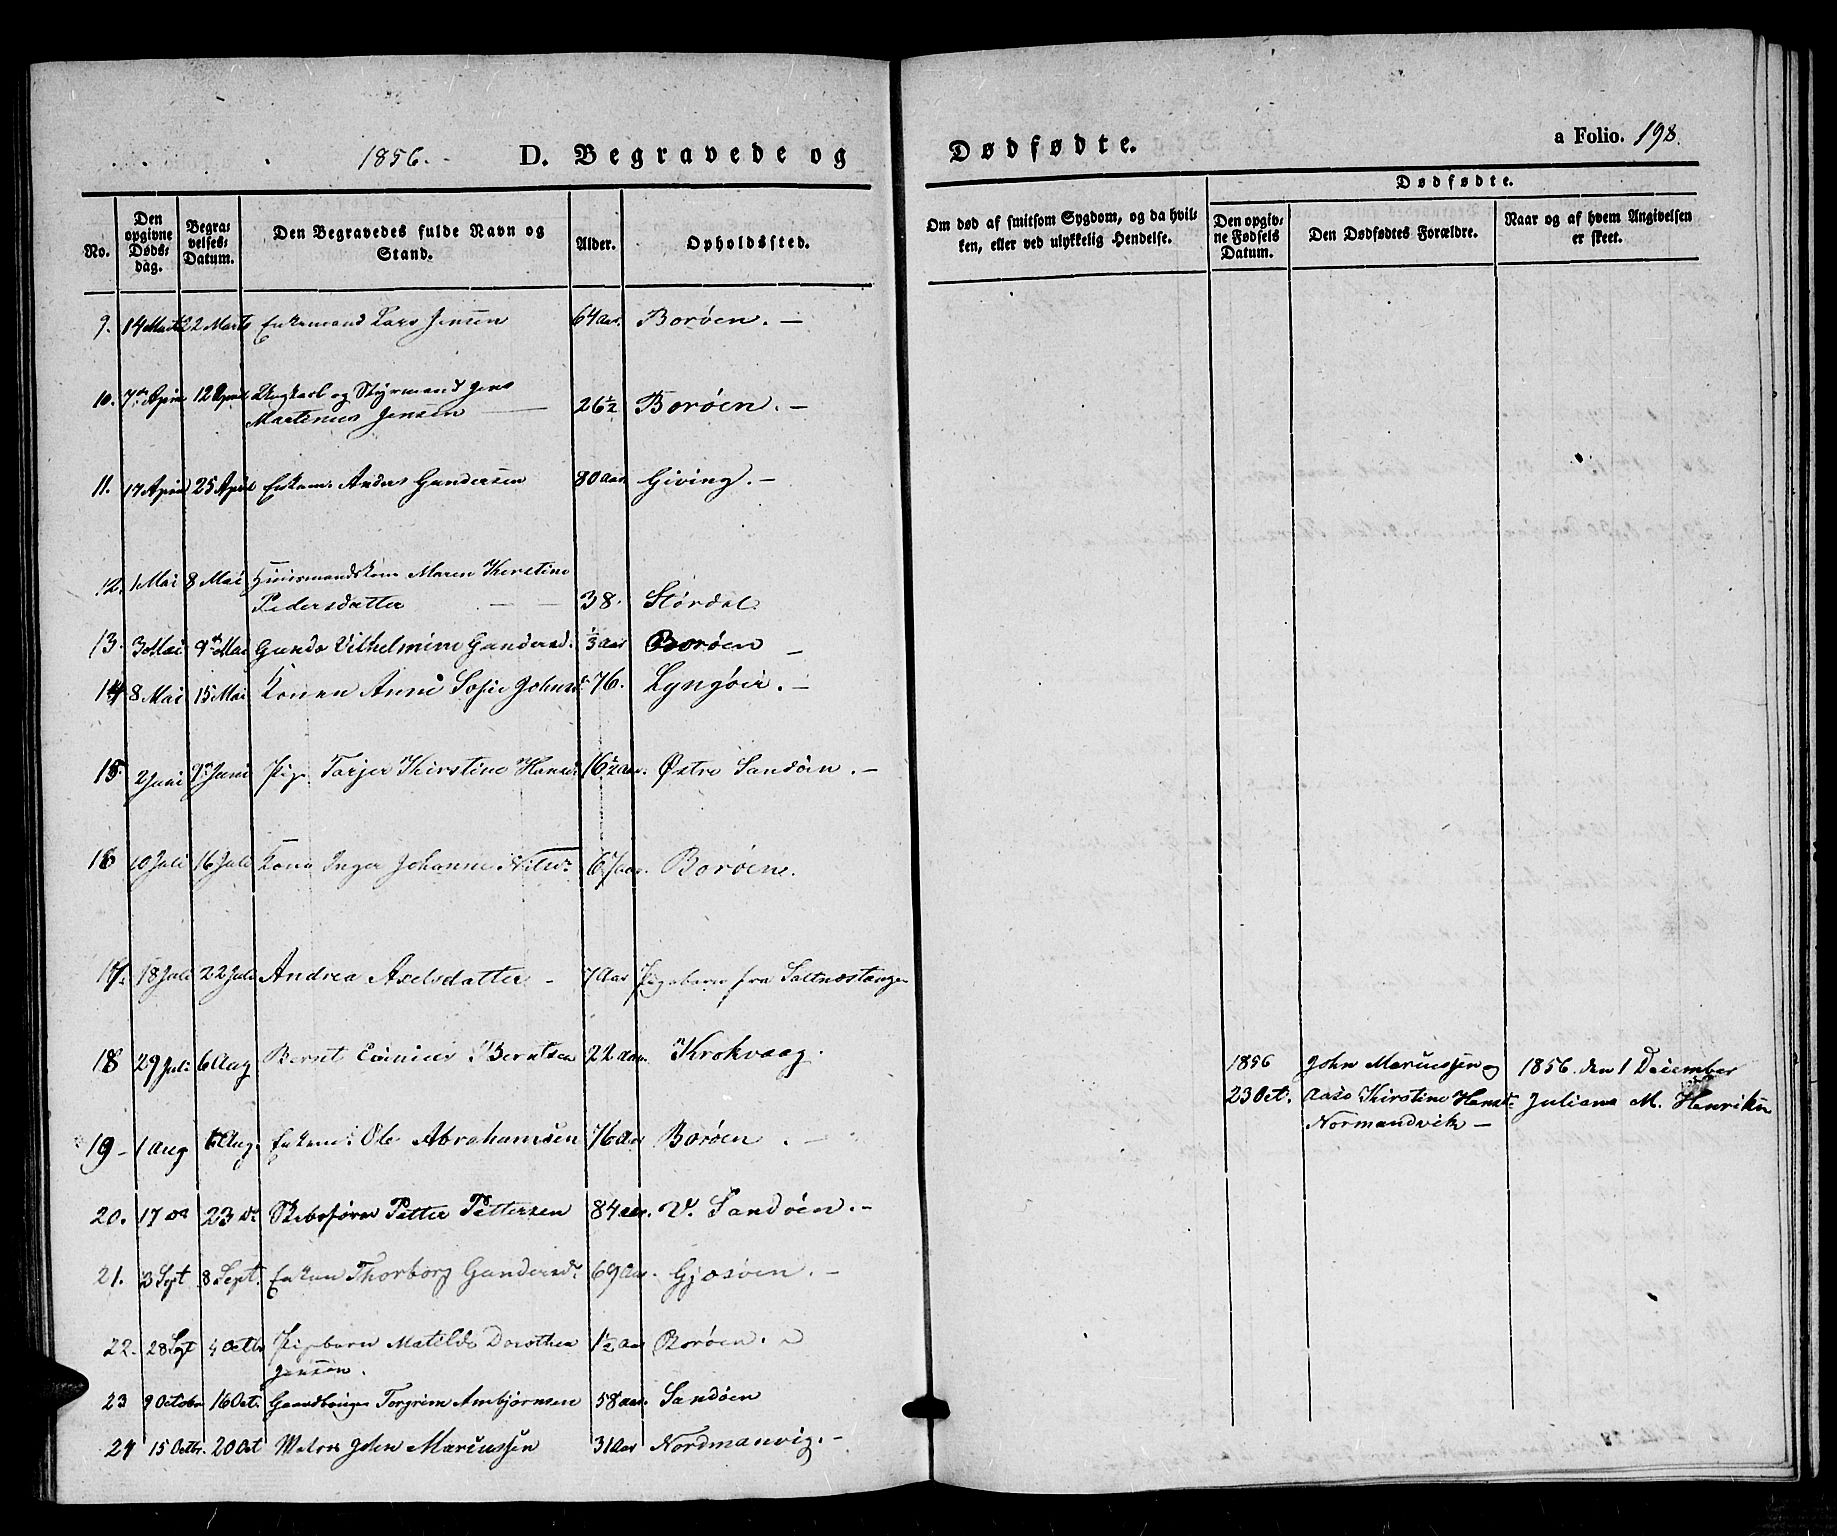 1856. D. Begravede og Dødfødte. a Folio. 198.
No. Den opgivne Døds-dag. Begra-velses-Datum. Den Begravedes fulde Navn og Stand. Alder. Opholdssted.
Om død af smitsom Sygdom, og da hvil-ken, eller ved ulykkelig Hendelse.
Dødfødte.
Den opgiv-ne Fødsels Datum. Den Dødfødtes Forældre. Naar og af hvem Angivelsen er skeet.
9. 14 Marts 22 Marts Enkemand Lars Jensen 64 Aar. Borøen. –
10. 7de April 12 April Ungkarl og Styrmand Jens
Martinius Jensen — 26½ Borøen. –
11. 17 April 25 April Enkem: Anders Gundersen 80 Aar Giving. –
12. 1 Mai 8 Mai Huusmandskone Maren Kirstine
Pedersdatter — — 38. Størdal
13. 3 Mai 9de Mai Gunda Vilhelmine Gundersd. ⅓ Aar Borøen –
14 8 Mai 15 Mai Konen Anne Sofie Johnsd. 76. Lyngøer. –
15. 2 Juni 9de Juni Pige Tarjer Kirstine Hansd. 16½ Aar. Østre Sandøen. –
16 10 Juli 16 Juli Kone Inger Johanne Nilsdr 67 Aar. Borøen.
17. 18 Juli 22 Juli Andrea Axelsdatter – 7 Aar Pigebarn fra Saltnæstangen
18 29 Juli 6 Aug Bernt Berntsen 22 Aar. Krokvaag.
19 – 1 Aug 6 Aug. Enkem: Ole Abrahamsen 76 Aar Borøen. –
20. 17 do 23 do Skibsfører Petter Pettersen 84 Aar. V. Sandøen. –
21. 3 Sept 8 Sept. Enken Thorborg Gundersdr 69 Aar. Gjæsøen. –
22. 28 Sept 4 Octbr Pigebarn Matilde Dorothea 1½ Aar Borøen. –
Jensen.
23 9 October 16 Oct. Gaardbruger Torgrim Ambjørnsen 58 Aar. Sandøen
24 15 Octbr. 20 Oct Matros John Mariussen 31 Aar Nordmanvig. –
1856 John Mariussen og 1856. den 1 December
23 Oct. Aase Kirstine Hansdr Juliane M. Henriksen
Normandvik –